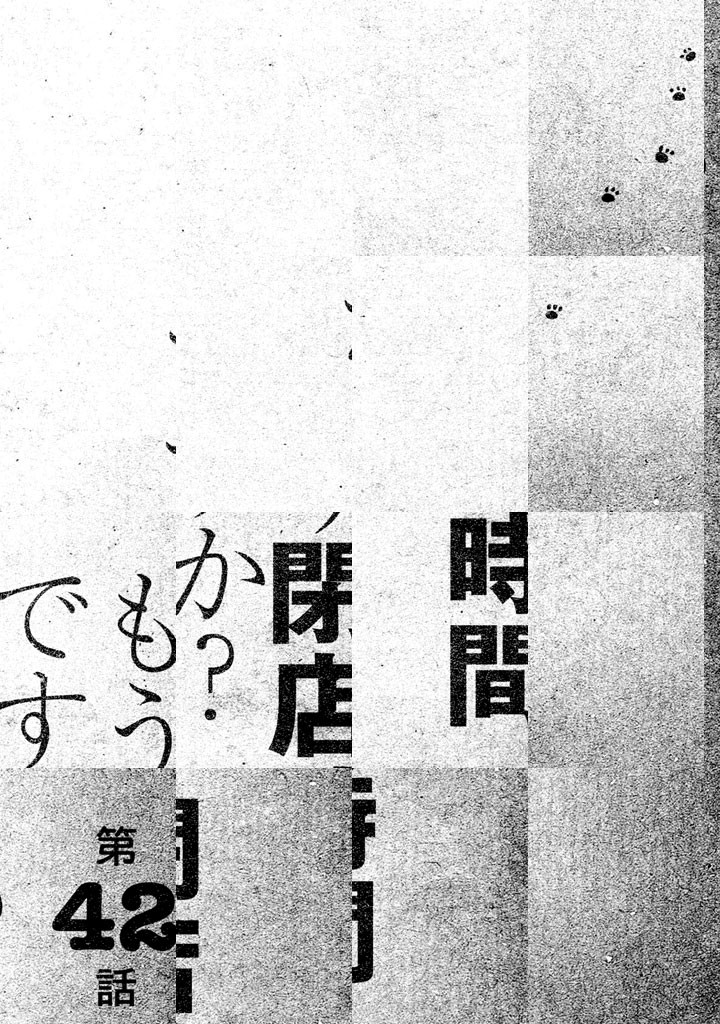 時間
閉店
か?
もう
です
第
42
話